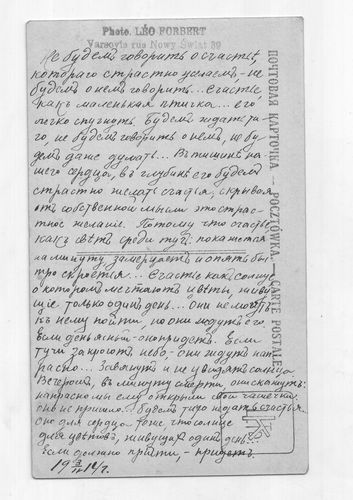 Photo. LÉO FORBERT
Varsovie rue Nowy Świat 39
ПОЧТОВАЯ КАРТОЧКА — POCZTÓWKA — CARTE POSTALE
Не будемъ говорить о счастьѣ,
котораго страстно желаемъ, — не
будемъ о немъ говорить... Счастье,
какъ маленькая птичка... его
легко спугнуть. Будемъ ждать
го, не будемъ говорить о немъ, не бу-
демъ даже думать... Въ тишинѣ на-
шего сердца, въ глубинѣ его будемъ
страстно желать счастья, скрывая
отъ собственной мысли это страст-
ное желаніе. Потому что счастье
какъ свѣтъ среди тучъ: покажется
на минуту, замерцаетъ и опять быст-
ро скроется... Счастье какъ солнце
о которомъ мечтаютъ цвѣты, живу-
щіе только одинъ день... они не могутъ
къ нему пойти, но они ждутъ его.
Если день ясный — оно придетъ. Если
тучи закроютъ небо, — они ждутъ нап-
расно... Завянутъ и не увидятъ солнца
Вечеромъ, въ минуту смерти они скажутъ:
напрасно мы ему открыли свои чашечки
оно не пришло... Будемъ тихо ждать счастья
оно для сердца тоже, что солнце
для цвѣтовъ, живущихъ одинъ день...
Если должно прійти, — придетъ.